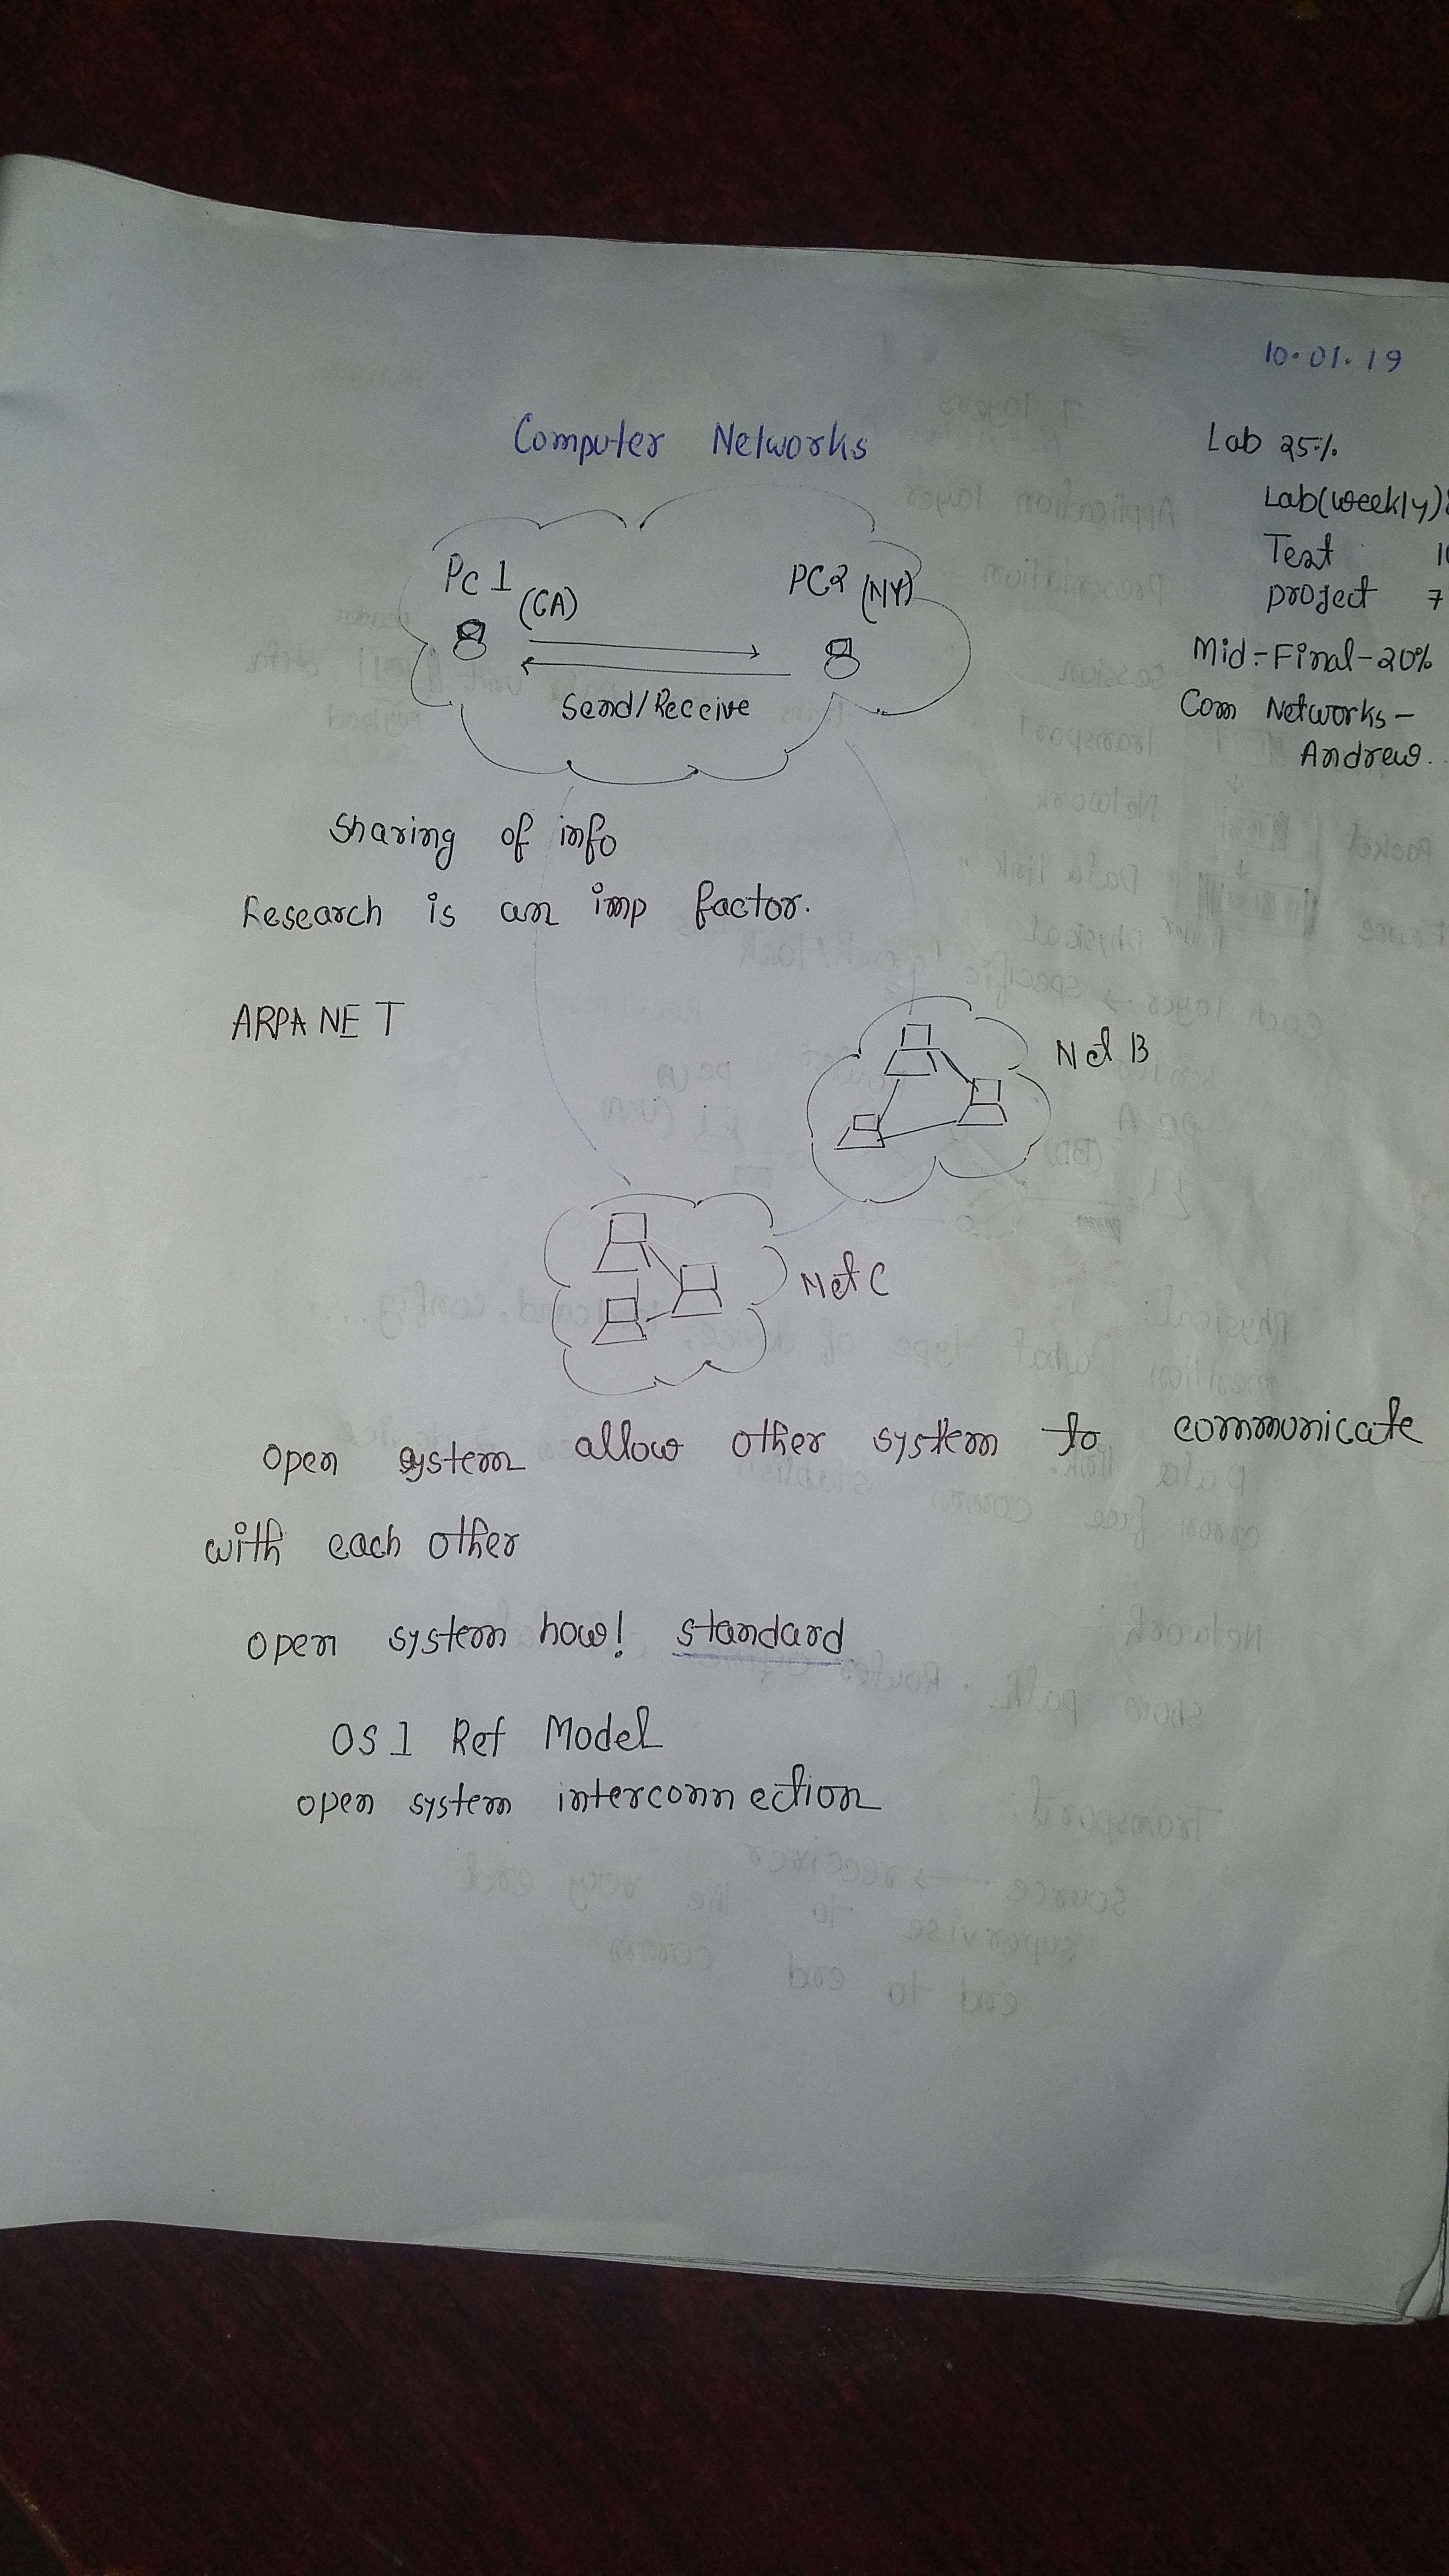 10.01.19
Computer Networks
Lab 25%
Lab(weekly)
Test
project 7
Mid-Final-20%
Com Networks-
Andrew..
Pc 1 (CA)
PC2 (NY)
Send/Receive
Sharing of info
Research is an imp factor.
ARPANET
Net B
Net C
open system allow other system to communicate
with each other
open system how! standard
OSI Ref Model
open system interconnection